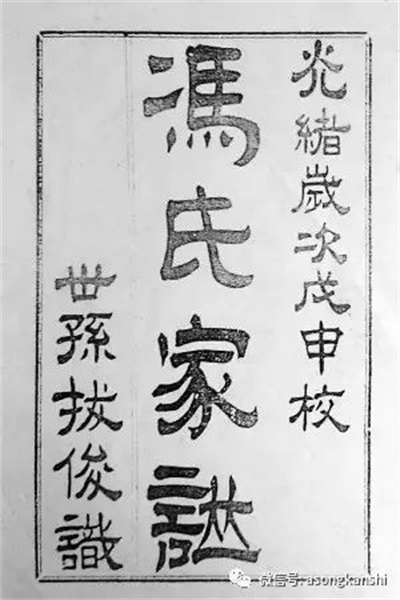 光緒歲次戊申校
馮氏家譜
世孫拔俊識
微信号: asongkanshi